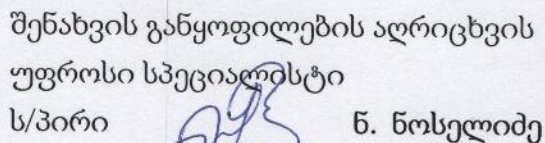 შენახვის განყოფილების აღრიცხვის
უფროსი სპეციალისტი
ს/პირი ნ. ნოსელიძე